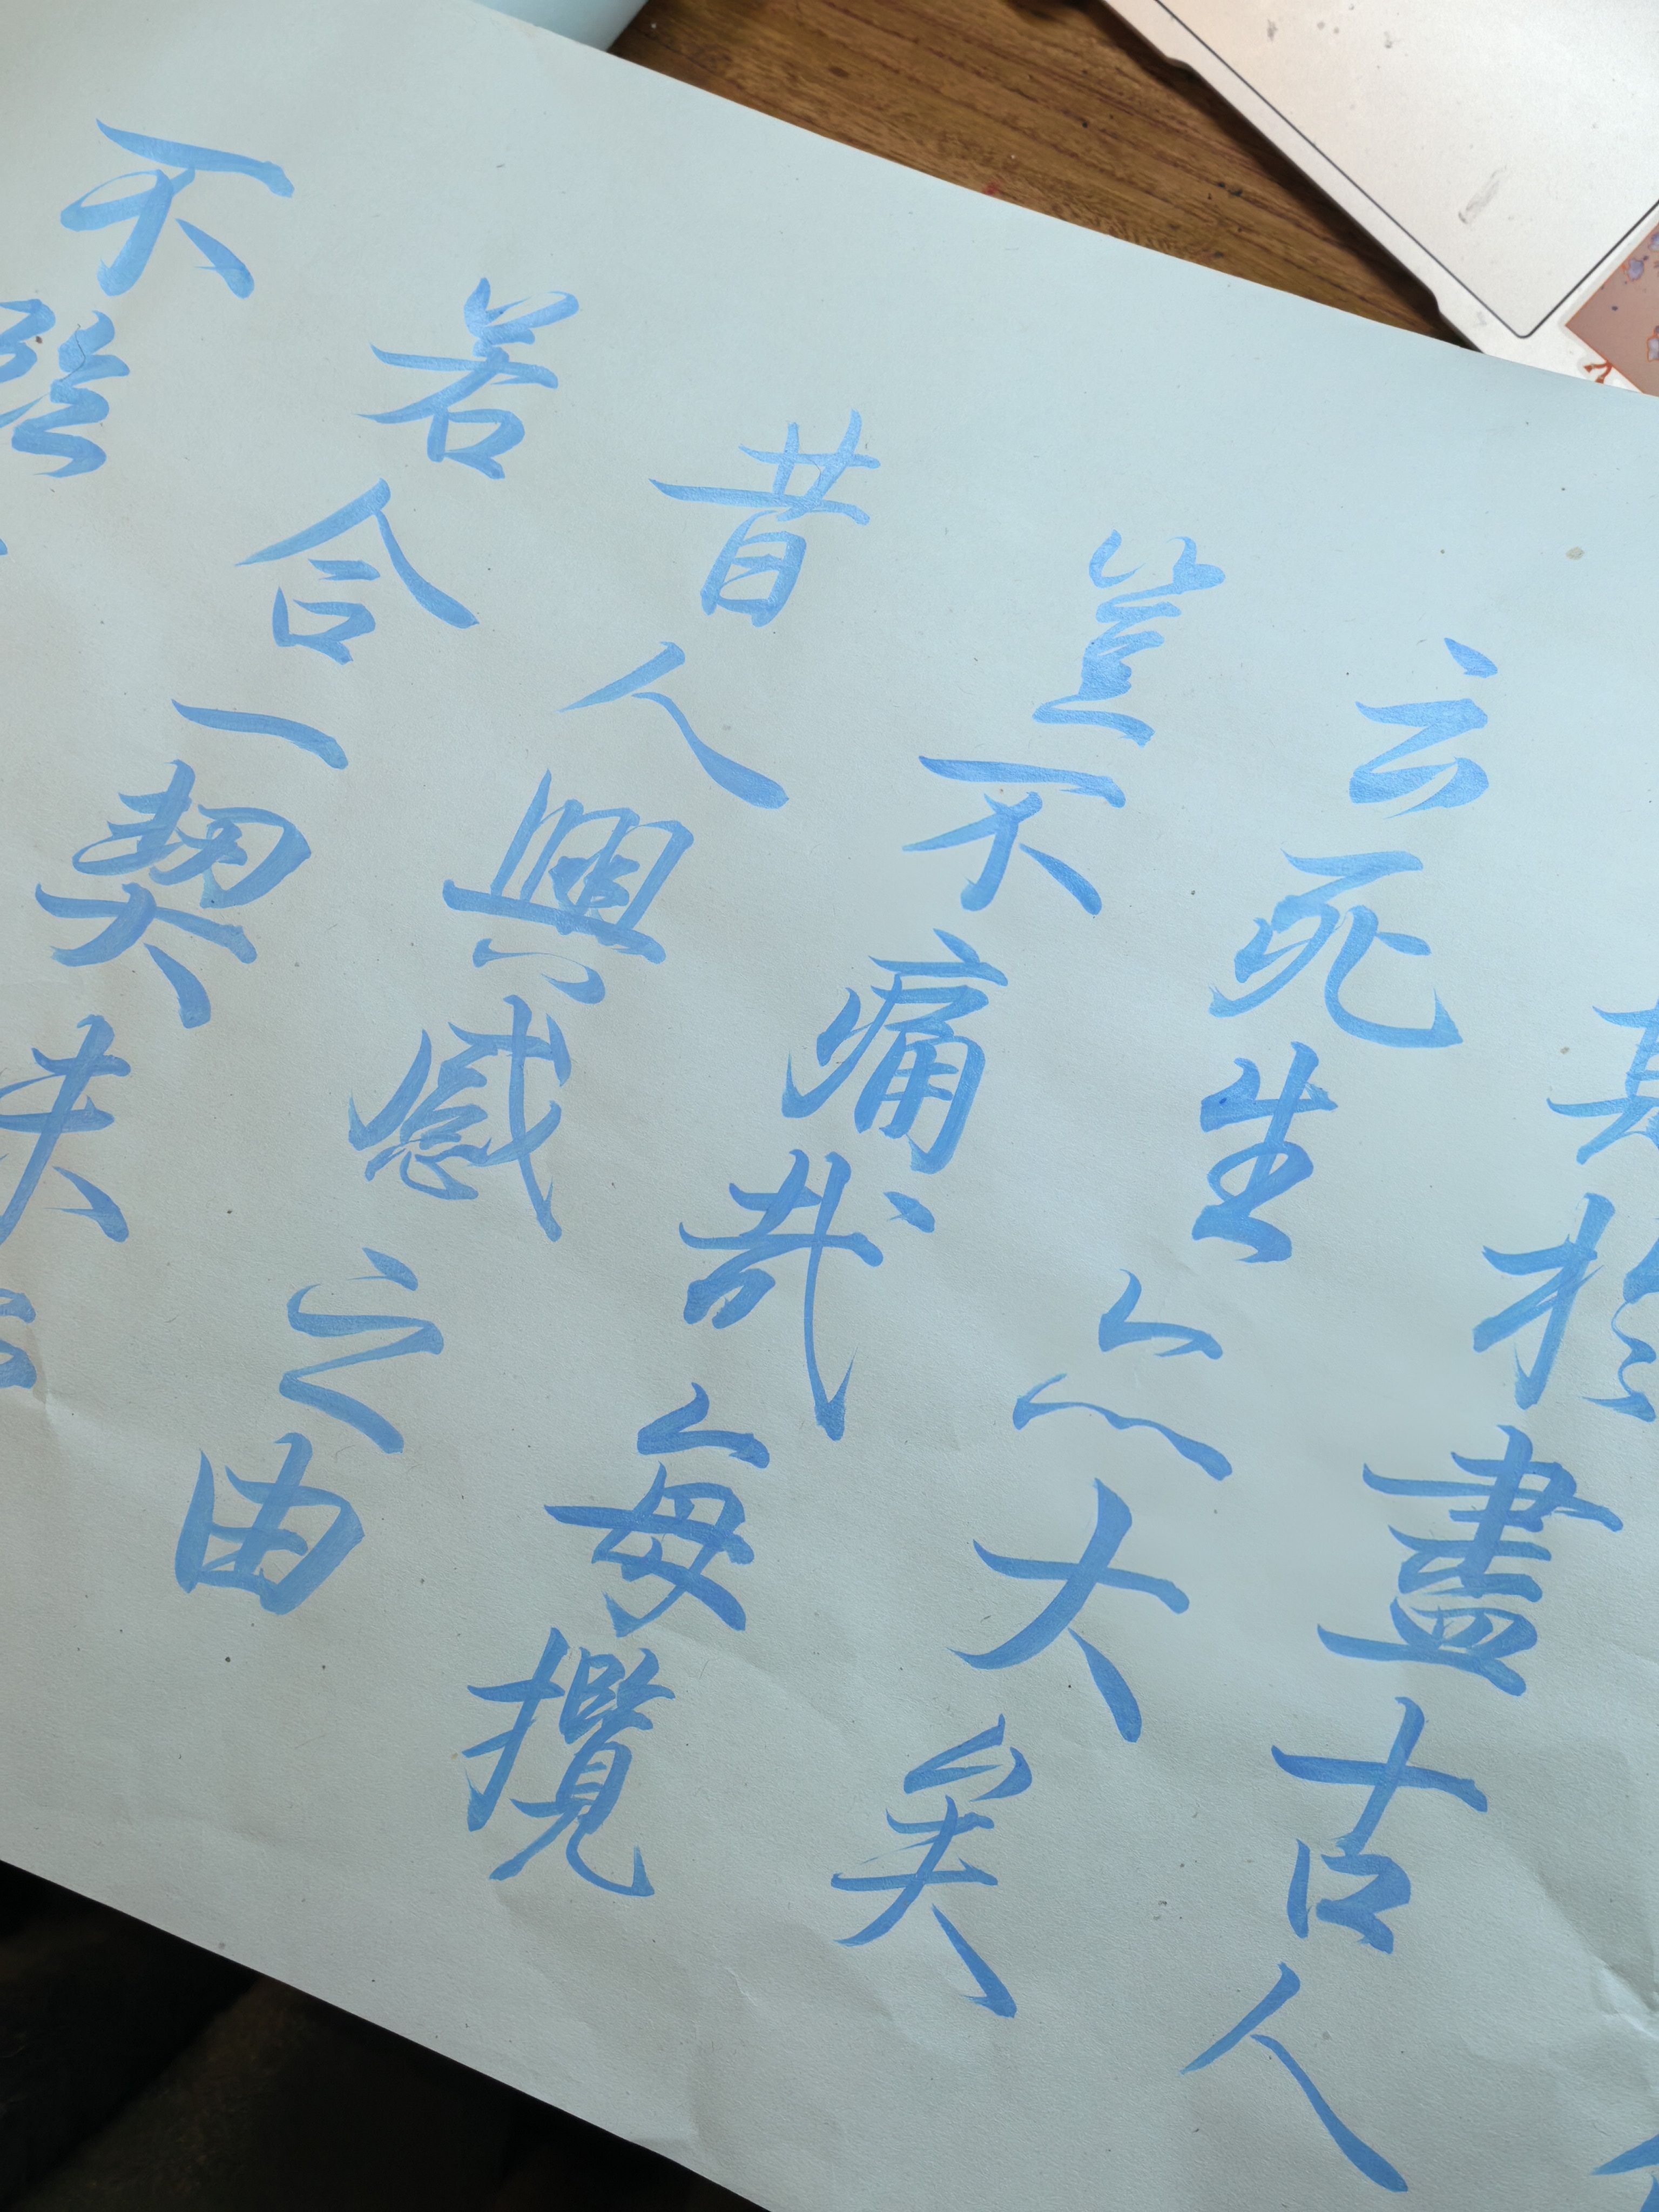 期於盡古人
云死生亦大矣
豈不痛哉每攬
昔人興感之由
若合一契未
不臨